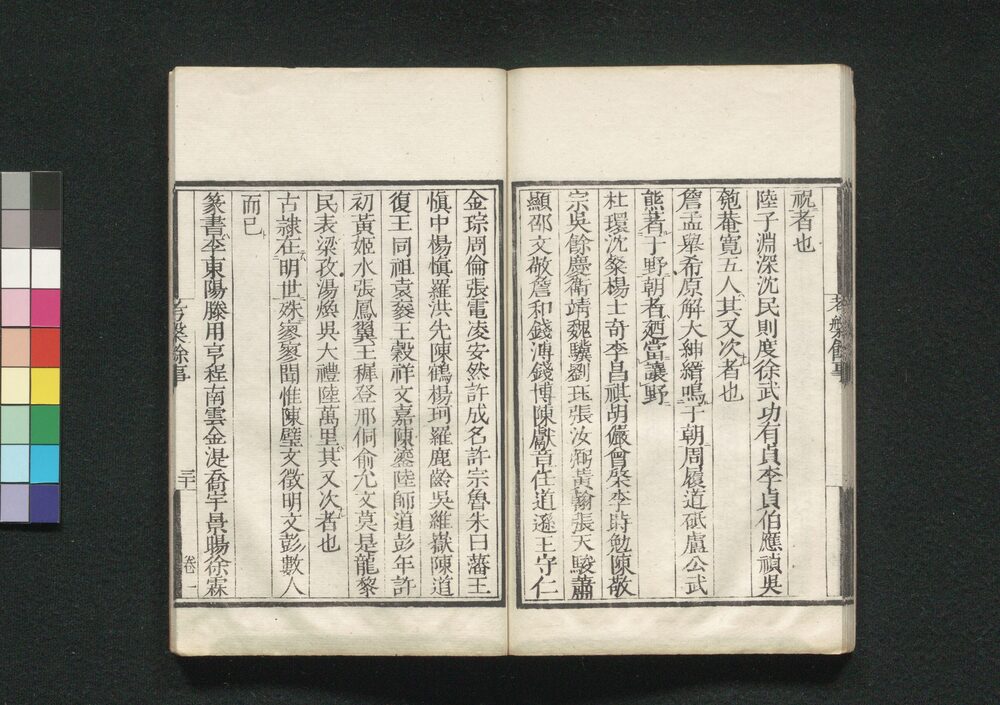 祝者也
陸子淵深沈民則度徐武功有貞李貞伯應禎吳
匏菴寬五人其又次者也
詹孟舉希原解大紳縉鳴于朝周履道砥盧公武
熊著于野朝者廼當讓野
杜環沈粲楊士奇李昌祺胡儼曾棨李時勉陳敬
宗吳餘慶衛靖魏驥劉珏張汝弼黃翰張天駿蕭
顯邵文敬詹和錢溥錢博陳獻章任道遜王守仁
金琮周倫張電凌安然許成名許宗魯朱曰藩王
慎中楊慎羅洪先陳鶴楊珂羅鹿齡吳維嶽陳道
復王同祖袁褧王穀祥文嘉陳鎏陸師道彭年許
初黃姬水張鳳翼王穉登邢侗俞允文莫是龍黎
民表梁孜湯煥吳大禮陸萬里其又次者也
古隷在明世殊寥寥聞惟陳璧文徵明文彭數人
而已
篆書李東陽滕用亨程南雲金湜喬宇景暘徐霖
考槃餘事
卷一